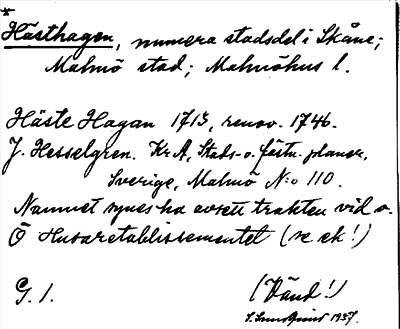 *
Hästhagen, numera stadsdel i Skåne;
Malmö stad; Malmöhus l.
Häste Hagan 1713, renov. 1746.
J. Hesselgren. Kr A, Stads- o. fästn. planer,
Sverige, Malmö N:o 110.
Namnet synes ha avsett trakten vid o.
Ö Husaretablissementet (se ek!)
G. 1. (Vänd!)
1937.